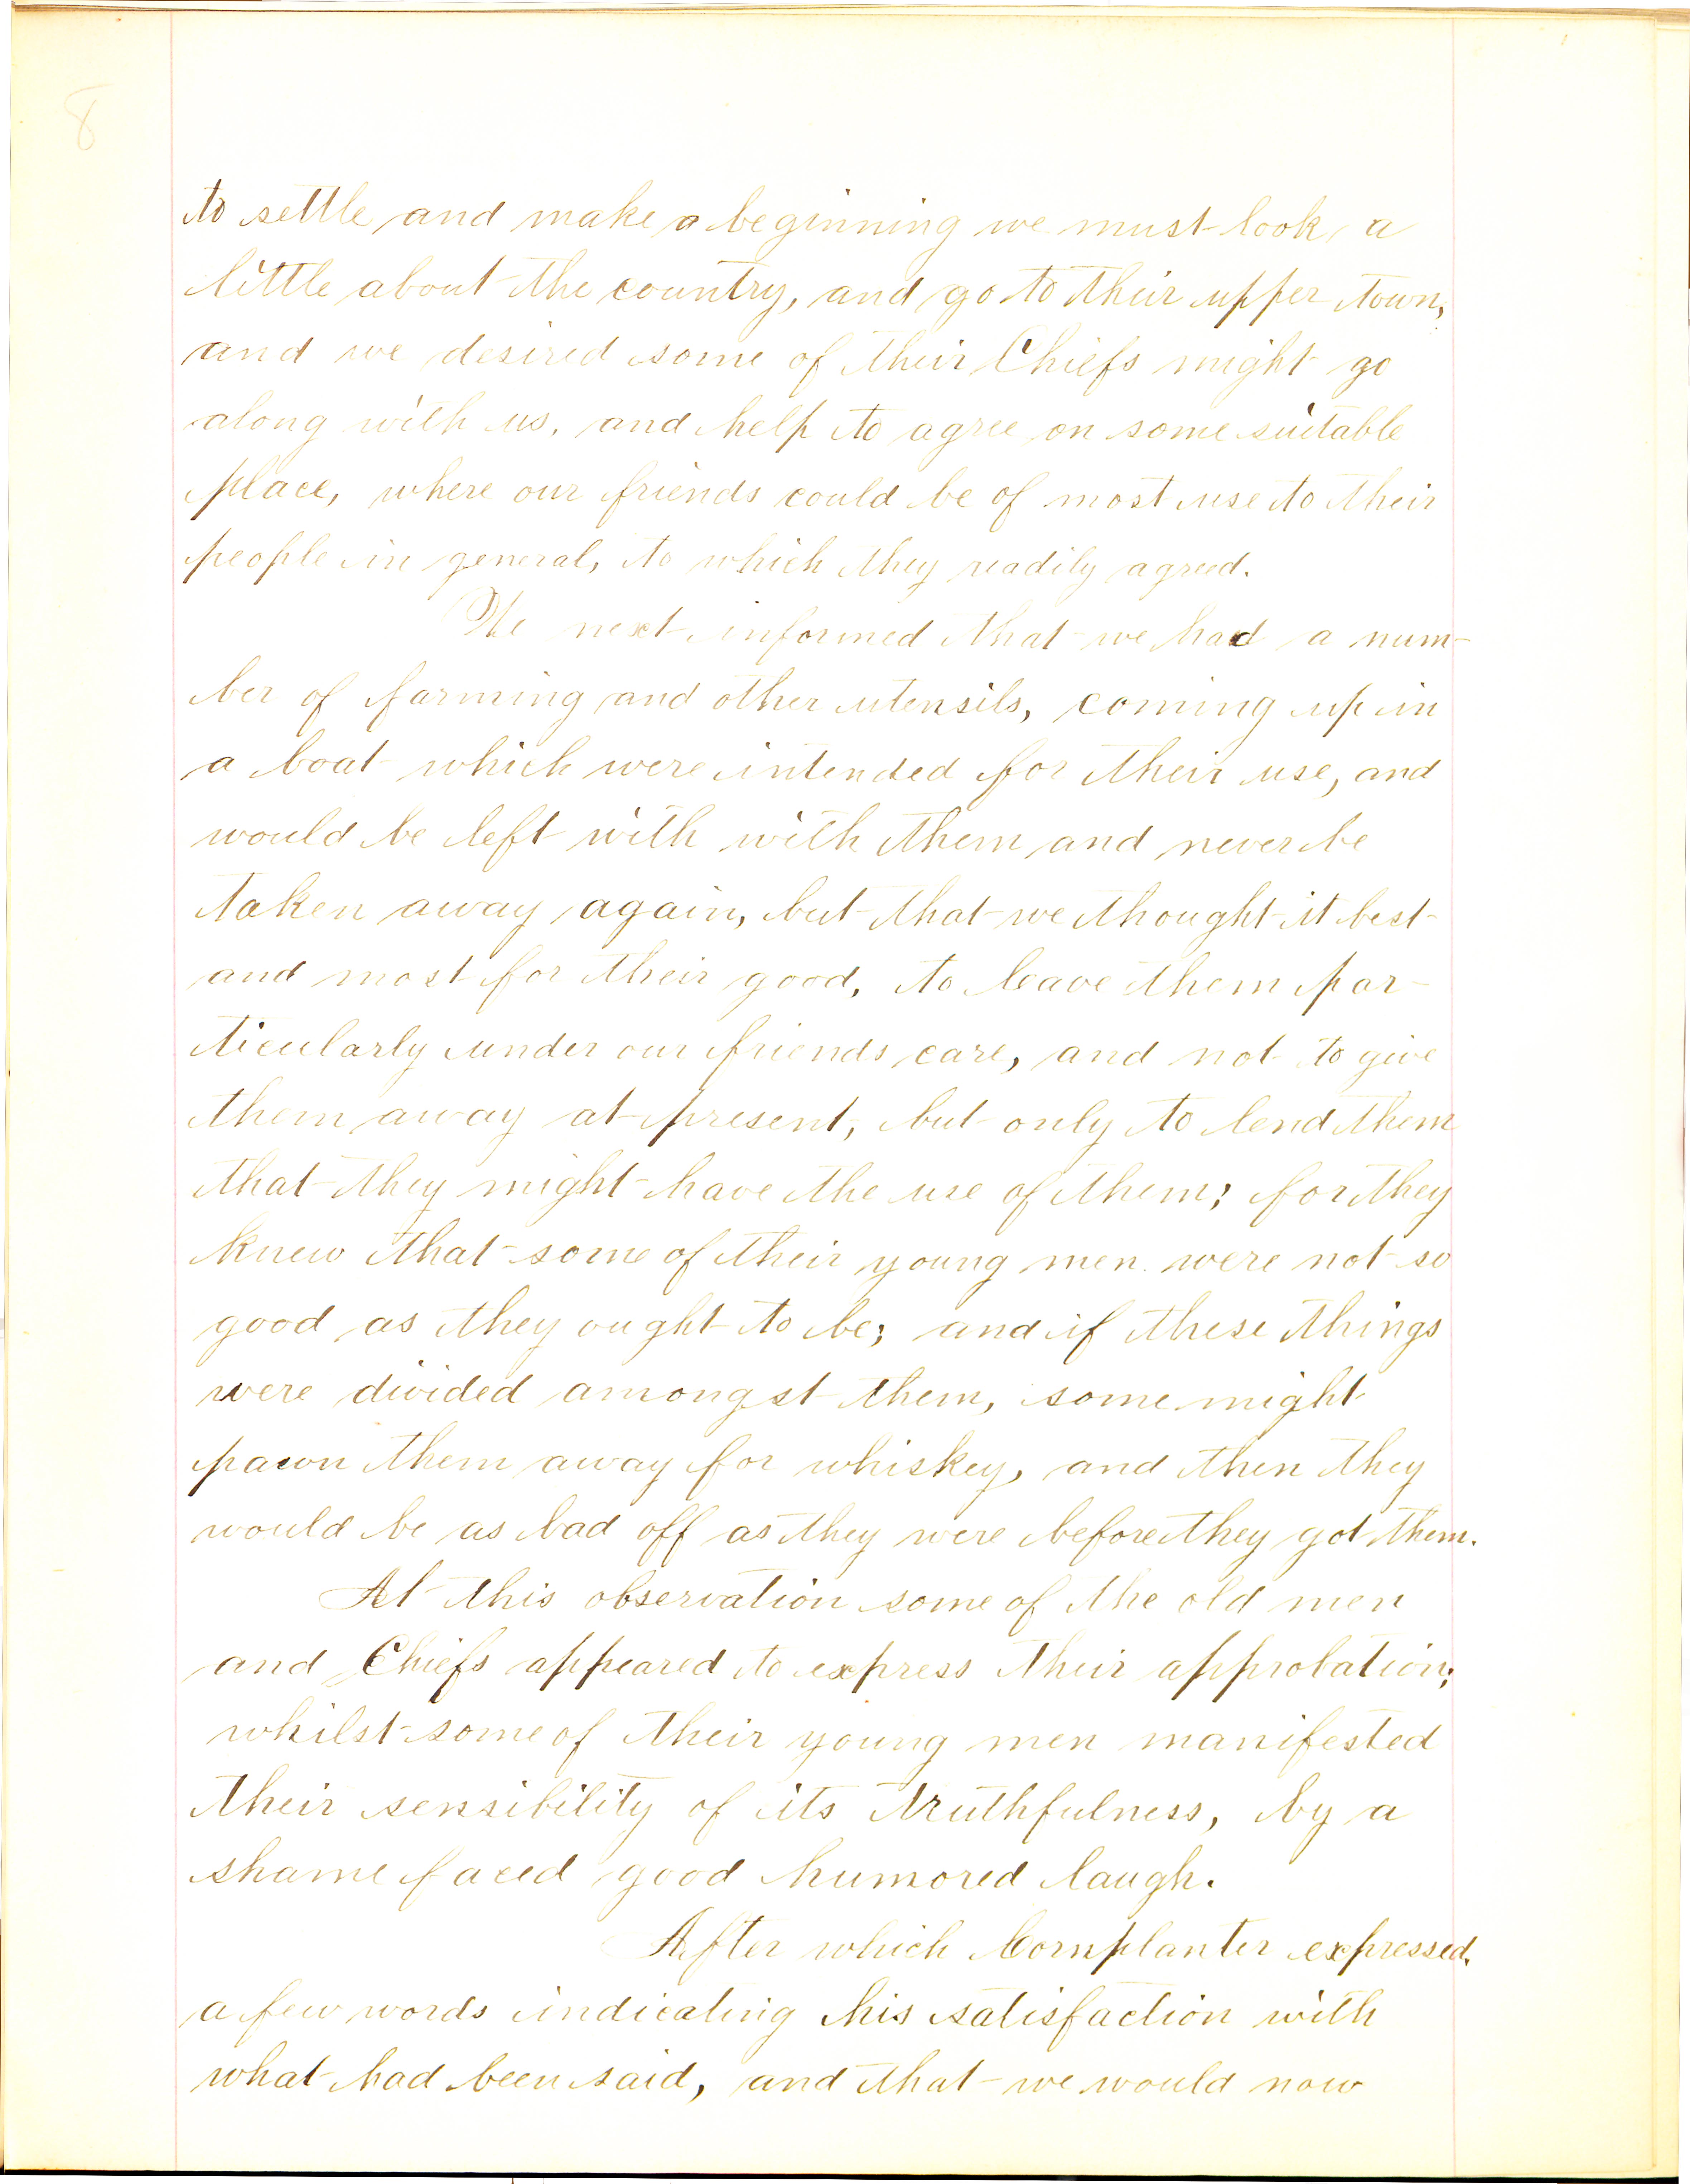 8
to settle and make a beginning we must look a
little about the country, and go to their upper town,
and we desired some of their Chiefs might go
along with us, and help to agree on some suitable
place, where our friends could be of most use to their
people in general, to which they readily agreed.
We next informed that we had a num-
ber of farming and other utensils, coming up in
a boat which were intended for their use, and
would be left with with them and never be
taken away again, but that we thought it best
and most for their good, to leave them par-
ticularly under our friends care, and not to give
them away at present, but only to lend them
that they might have the use of them; for they
knew that some of their young men were not so
good as they ought to be; and if these things
were divided amongst them, some might
pawn them away for whiskey, and then they
would be as bad off as they were before they got them.
At this observation some of the old men
and Chiefs appeared to express their approbation;
whilst some of their young men manifested
their sensibility of its truthfulness, by a
shame faced good humored laugh.
After which Cornplanter expressed,
a few words indicating his satisfaction with
what had been said, and that we would now